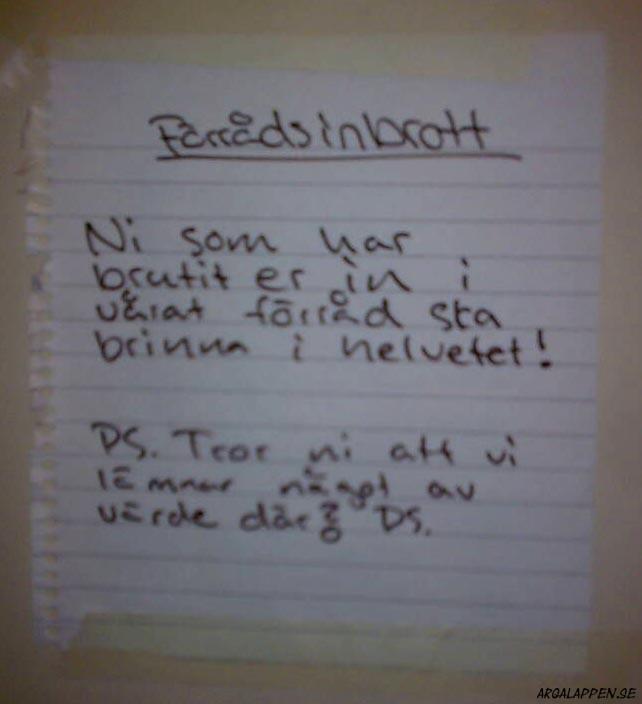 Förrådsinbrott
Ni som har
brutit er in i
vårat förråd ska
brinna i helvetet!
DS. Tror ni att vi
lämnar något av
värde där? DS.
ARGALAPPEN.SE